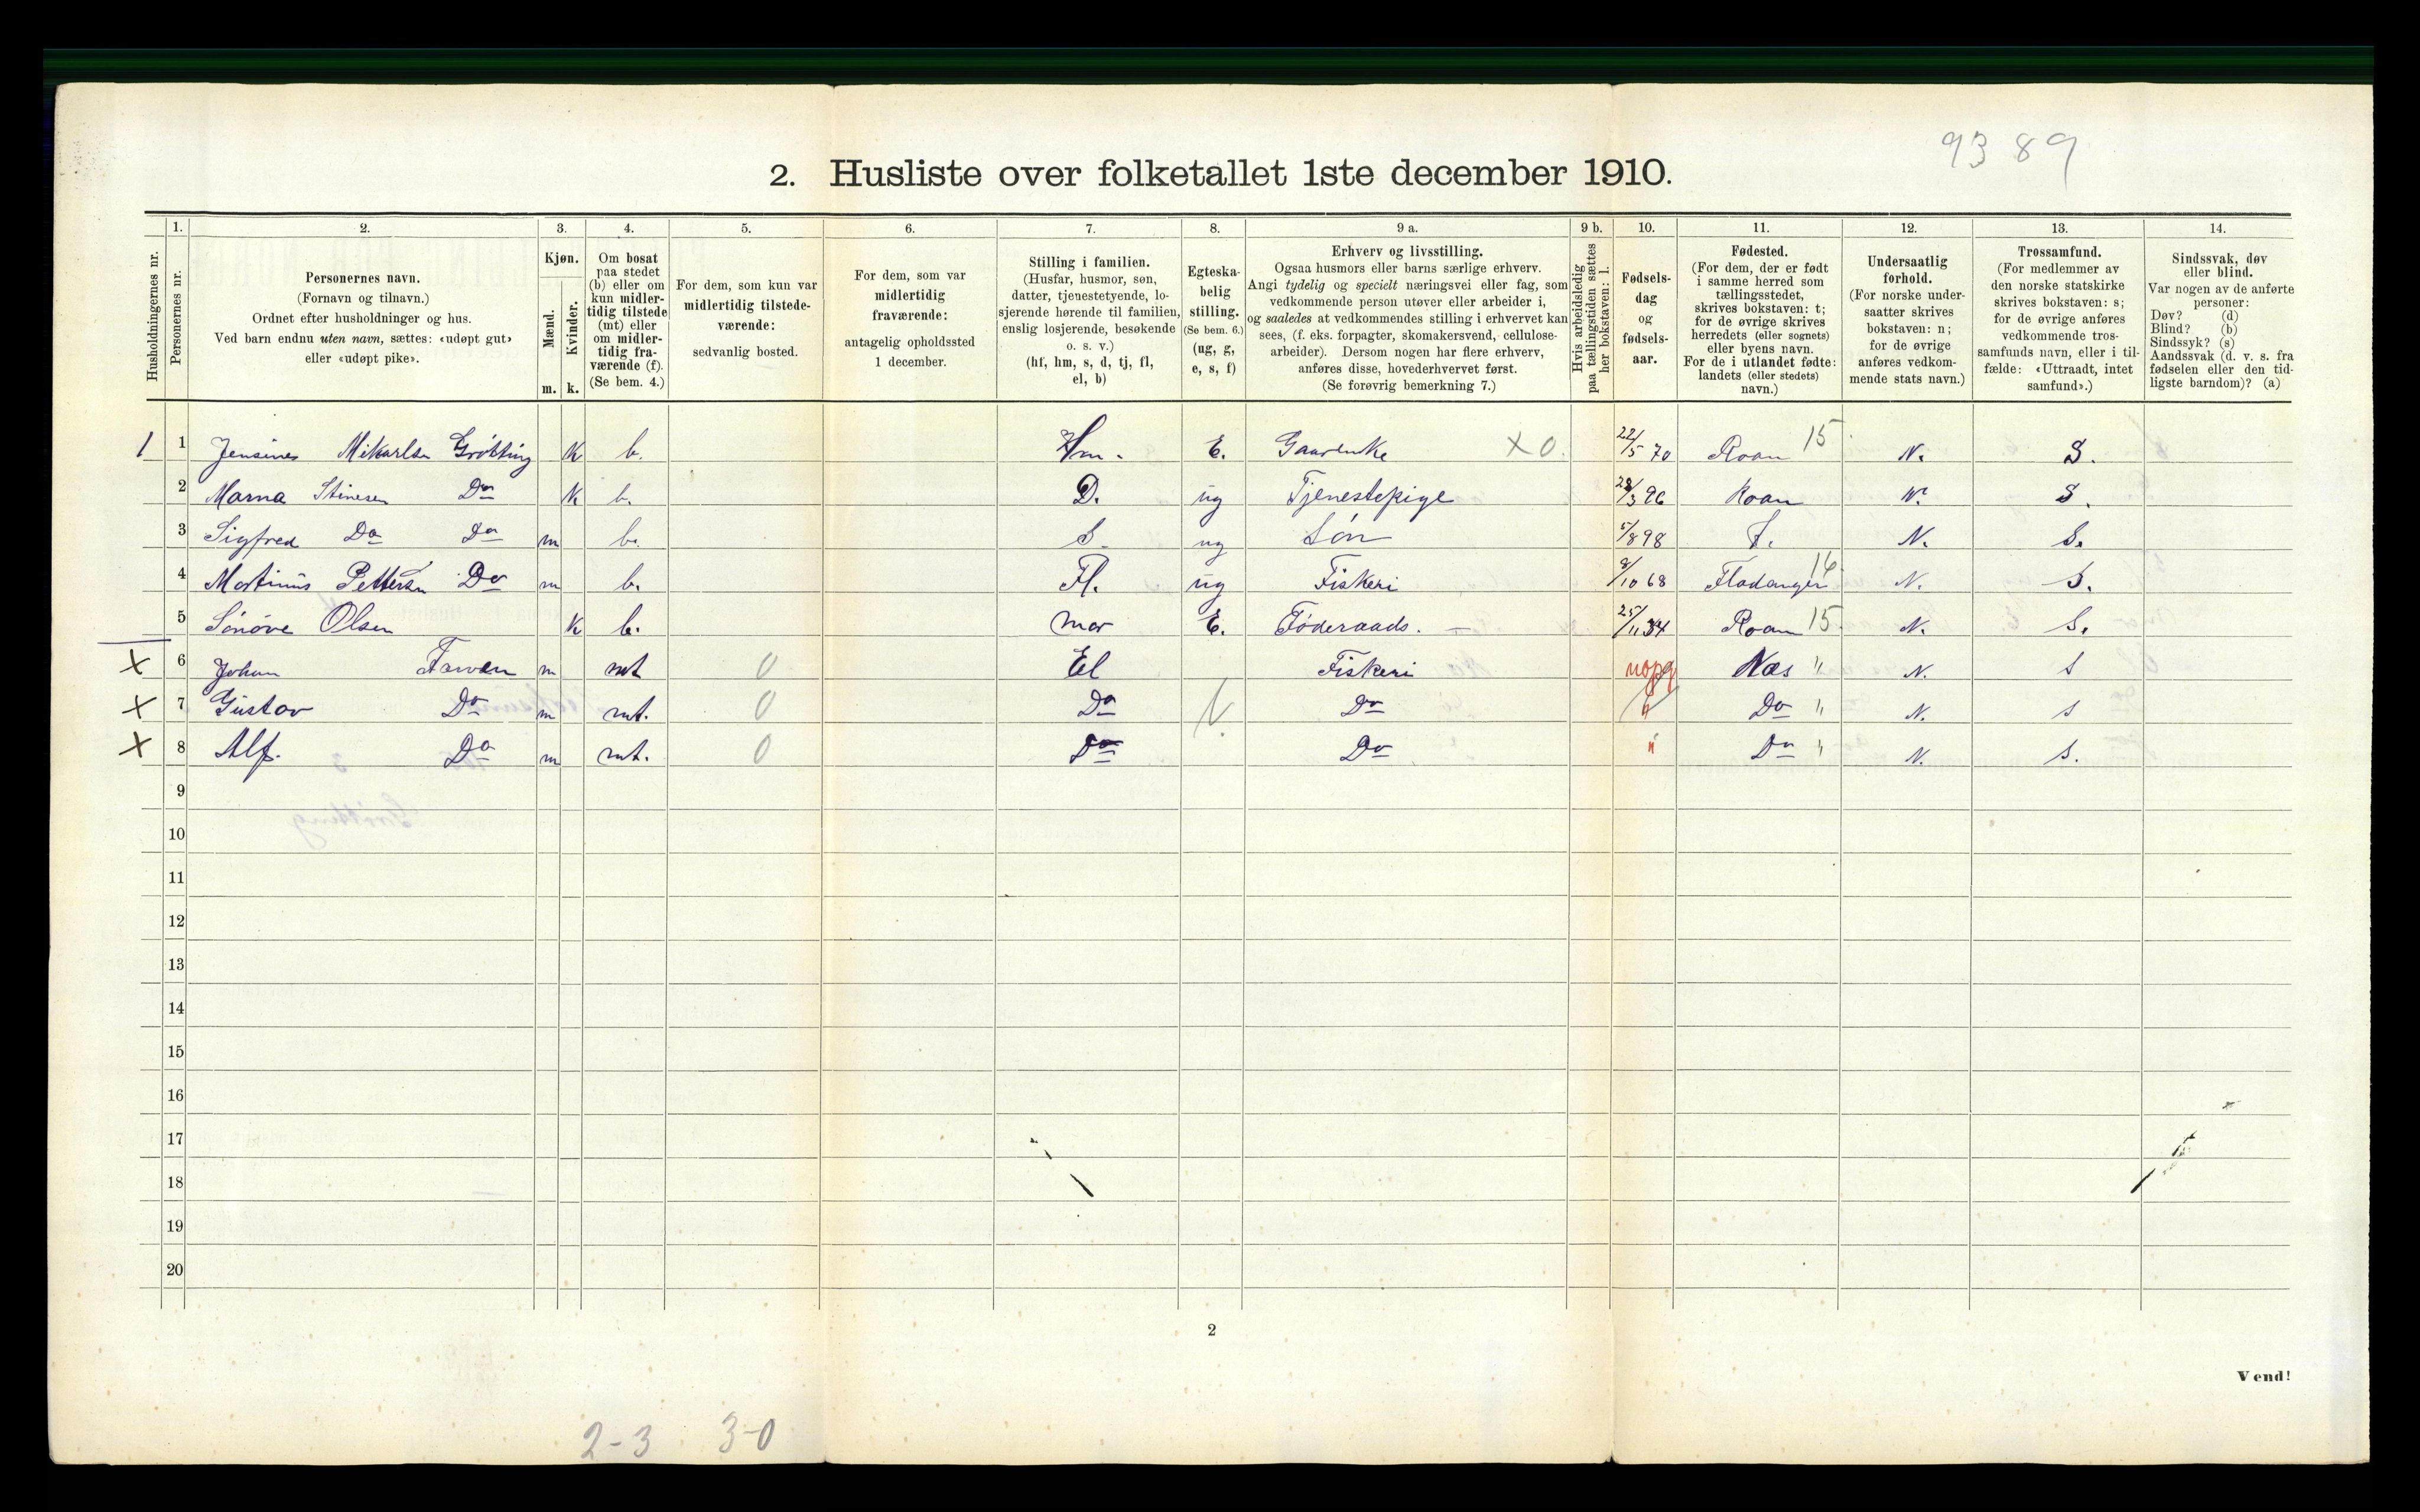 93 89
2. Husliste over folketallet 1ste december 1910.
Husholdningernes nr.
1. Personernes nr.
2. Personernes navn. (Fornavn og tilnavn.) Ordnet efter husholdninger og hus. Ved barn endnu uten navn, sættes: «udøpt gut» eller «udøpt pike».
3. Kjøn. Mænd. m. Kvinder. k.
4. Om bosat paa stedet (b) eller om kun midlertidig tilstede (mt) eller om midlertidig fraværende (f). (Se bem. 4.)
5. For dem, som kun var midlertidig tilstedeværende: sedvanlig bosted.
6. For dem, som var midlertidig fraværende: antagelig opholdssted 1 december.
7. Stilling i familien. (Husfar, husmor, søn, datter, tjenestetyende, losjerende hørende til familien, enslig losjerende, besøkende o. s. v.) (hf, hm, s, d, tj, fl, el, b)
8. Egteskabelig stilling. (Se bem. 6.) (ug, g, e, s, f)
9 a. Erhverv og livsstilling. Ogsaa husmors eller barns særlige erhverv. Angi tydelig og specielt næringsvei eller fag, som vedkommende person utøver eller arbeider i, og saaledes at vedkommendes stilling i erhvervet kan sees, (f. eks. forpagter, skomakersvend, cellulosearbeider). Dersom nogen har flere erhverv, anføres disse, hovederhvervet først. (Se forøvrig bemerkning 7.)
9 b. Hvis arbeidsledig paa tællingstiden sættes her bokstaven: l.
10. Fødselsdag og fødselsaar.
11. Fødested. (For dem, der er født i samme herred som tællingsstedet, skrives bokstaven: t; for de øvrige skrives herredets (eller sognets) eller byens navn. For de i utlandet fødte: landets (eller stedets) navn.)
12. Undersaatlig forhold. (For norske undersaatter skrives bokstaven: n; for de øvrige anføres vedkommende stats navn.)
13. Trossamfund. (For medlemmer av den norske statskirke skrives bokstaven: s; for de øvrige anføres vedkommende trossamfunds navn, eller i tilfælde: «Uttraadt, intet samfund».)
14. Sindssvak, døv eller blind. Var nogen av de anførte personer: Døv? (d) Blind? (b) Sindssyk? (s) Aandssvak (d. v. s. fra fødselen eller den tidligste barndom)? (a)
1 1 Mikarlsen Grötting K b. Hm. E. X 0. 22/5 70 Roan 15 N. S.
2 Marna Stinesen Do K b. D. ug Tjenestepige 96 Roan N. S.
3 Sigfred Do Do m b. S. ug Sön 5/8 98 T. N. S.
4 Martinus Pettersen Do m b. Fl. ug Fiskeri 9/10 68 Fladanger 16 N. S.
5 Sönöve Olsen K b. Mor E. Föderaads. 25/11 34 Roan 15 N. S.
X 6 Johan m mt 0 El Fiskeri uopg Næs " N. S
X 7 Gustav Do m mt. 0 Do Do " Do " N. S
X 8 Alf. Do m mt. 0 Do Do " Do " N. S.
9
10
11
12
13
14
15
16
17
18
19
20
2
Vend!
2-3 3-0